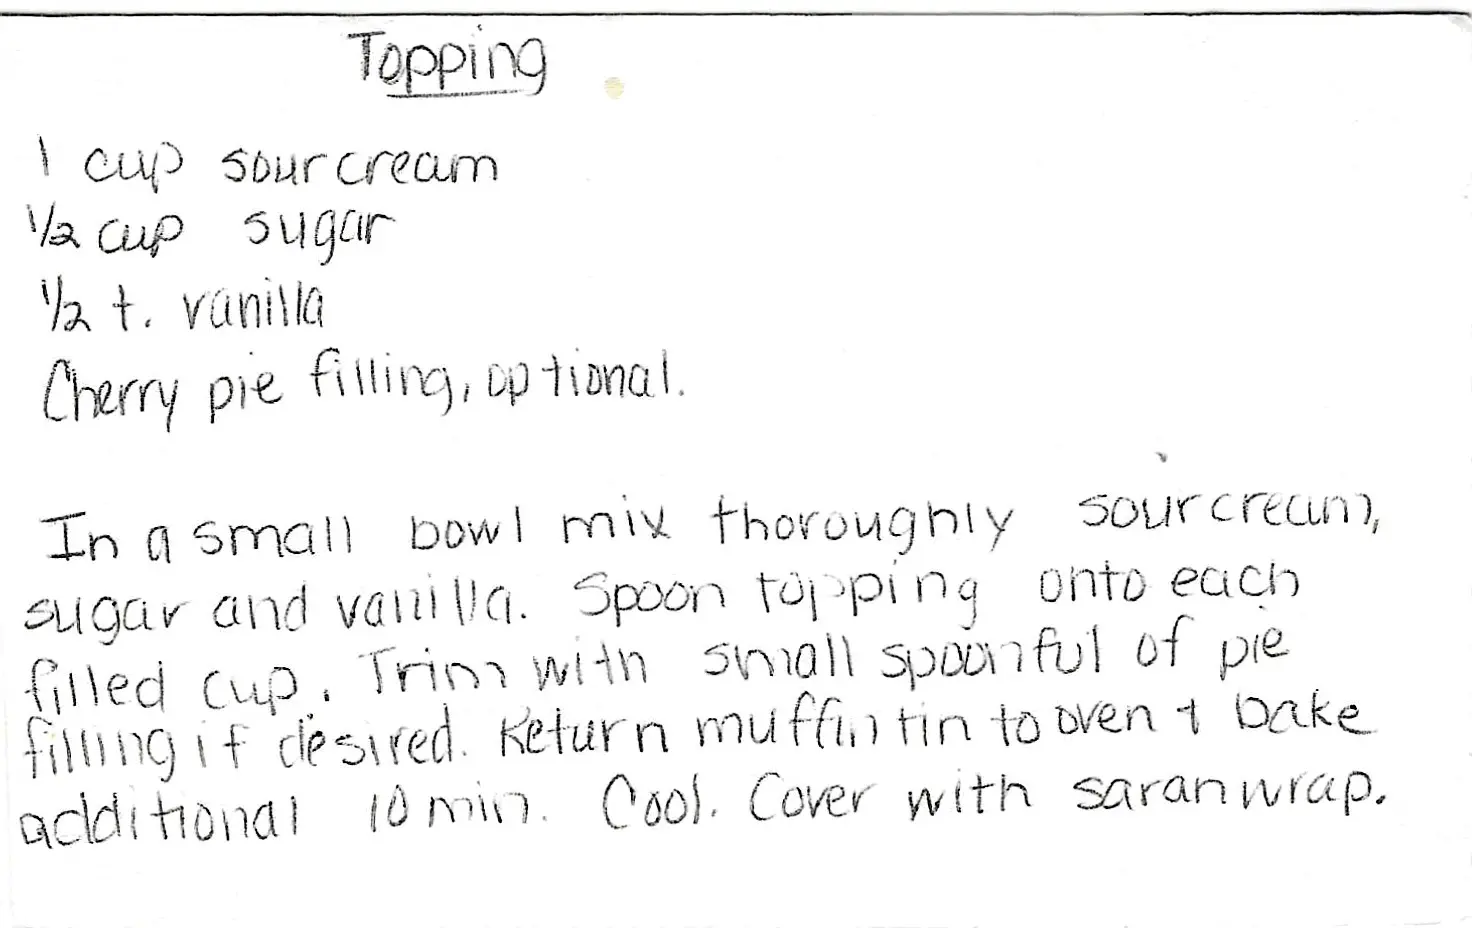 Topping
1 cup sour cream
1/2 cup sugar
1/2 t. vanilla
Cherry pie filling, optional.
In a small bowl mix thoroughly sour cream,
sugar and vanilla. Spoon topping onto each
filled cup. Trim with small spoonful of pie
filling if desired. Return muffin tin to oven & bake
additional 10 min. Cool. Cover with saran wrap.